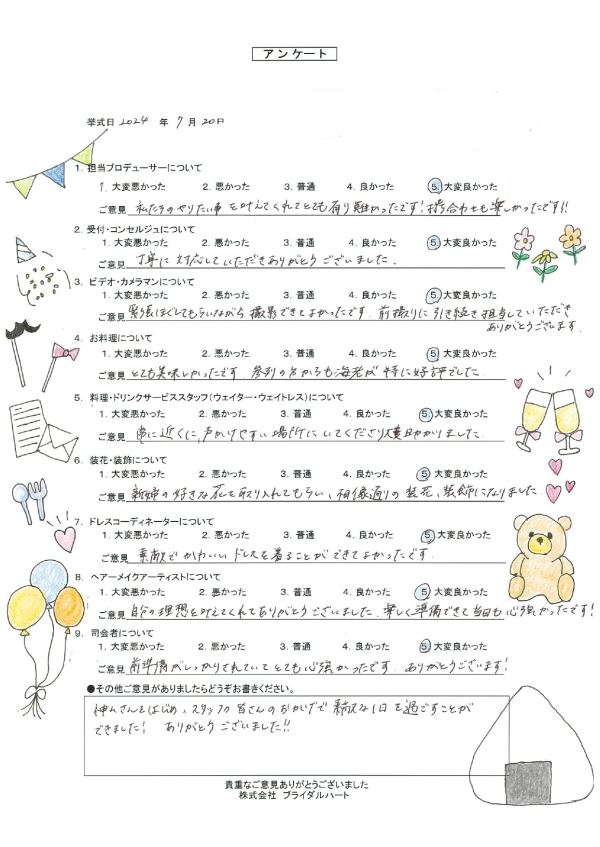 アンケート
挙式日 2024 年 7 月 20 日
1. 担当プロデューサーについて
1. 大変悪かった 2. 悪かった 3. 普通 4. 良かった 5. 大変良かった
ご意見 私たちのやりたい事を叶えてくれてとても有り難かったです! 打ち合わせも楽しかったです!!
2. 受付・コンセルジュについて
1. 大変悪かった 2. 悪かった 3. 普通 4. 良かった 5. 大変良かった
ご意見 丁寧に対応していただきありがとうございました.
3. ビデオ・カメラマンについて
1. 大変悪かった 2. 悪かった 3. 普通 4. 良かった 5. 大変良かった
ご意見 緊張ほぐしてもらいながら撮影できてよかったです. 前撮りに引き続き担当していただき
ありがとうございます.
4. お料理について
1. 大変悪かった 2. 悪かった 3. 普通 4. 良かった 5. 大変良かった
ご意見 とても美味しかったです. 参列の方からも海老が特に好評でした.
5. 料理・ドリンクサービススタッフ(ウェイター・ウェイトレス)について
1. 大変悪かった 2. 悪かった 3. 普通 4. 良かった 5. 大変良かった
ご意見 常に近くに、声かけやすい場所にいてくださり大変助かりました.
6. 装花・装飾について
1. 大変悪かった 2. 悪かった 3. 普通 4. 良かった 5. 大変良かった
ご意見 新婦の好きな花を取り入れてもらい、想像通りの装花、装飾になりました
7. ドレスコーディネーターについて
1. 大変悪かった 2. 悪かった 3. 普通 4. 良かった 5. 大変良かった
ご意見 素敵でかわいいドレスを着ることができてよかったです.
8. ヘアーメイクアーティストについて
1. 大変悪かった 2. 悪かった 3. 普通 4. 良かった 5. 大変良かった
ご意見 自分の理想を叶えてくれてありがとうございました. 楽しく準備できて当日も心強かったです!
9. 司会者について
1. 大変悪かった 2. 悪かった 3. 普通 4. 良かった 5. 大変良かった
ご意見 前準備がしっかりされていてとても心強かったです. ありがとうございます!
●その他ご意見がありましたらどうぞお書きください。
さんをはじめ、スタッフの皆さんのおかげで素敵な1日を過ごすことが
できました! ありがとうございました!!
貴重なご意見ありがとうございました
株式会社 ブライダルハート